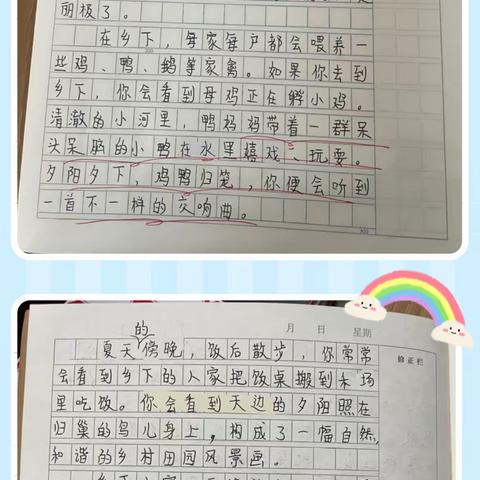 丽极了。
在乡下，每家每户都会喂养一
些鸡、鸭、鹅等家禽。如果你去到
乡下，你会看到母鸡正在孵小鸡。
清澈的小河里，鸭妈妈带着一群呆
头呆脑的小鸭在水里嬉戏、玩耍。
夕阳夕下，鸡鸭归笼，你便会听到
一首不一样的交响曲。
月 日 星期
的
夏天傍晚，饭后散步，你常常
修正栏
会看到乡下的人家把饭桌搬到禾场
里吃饭。你会看到天边的夕阳照在
归巢的鸟儿身上，构成了一幅自然，
和谐的乡村田园风景画。